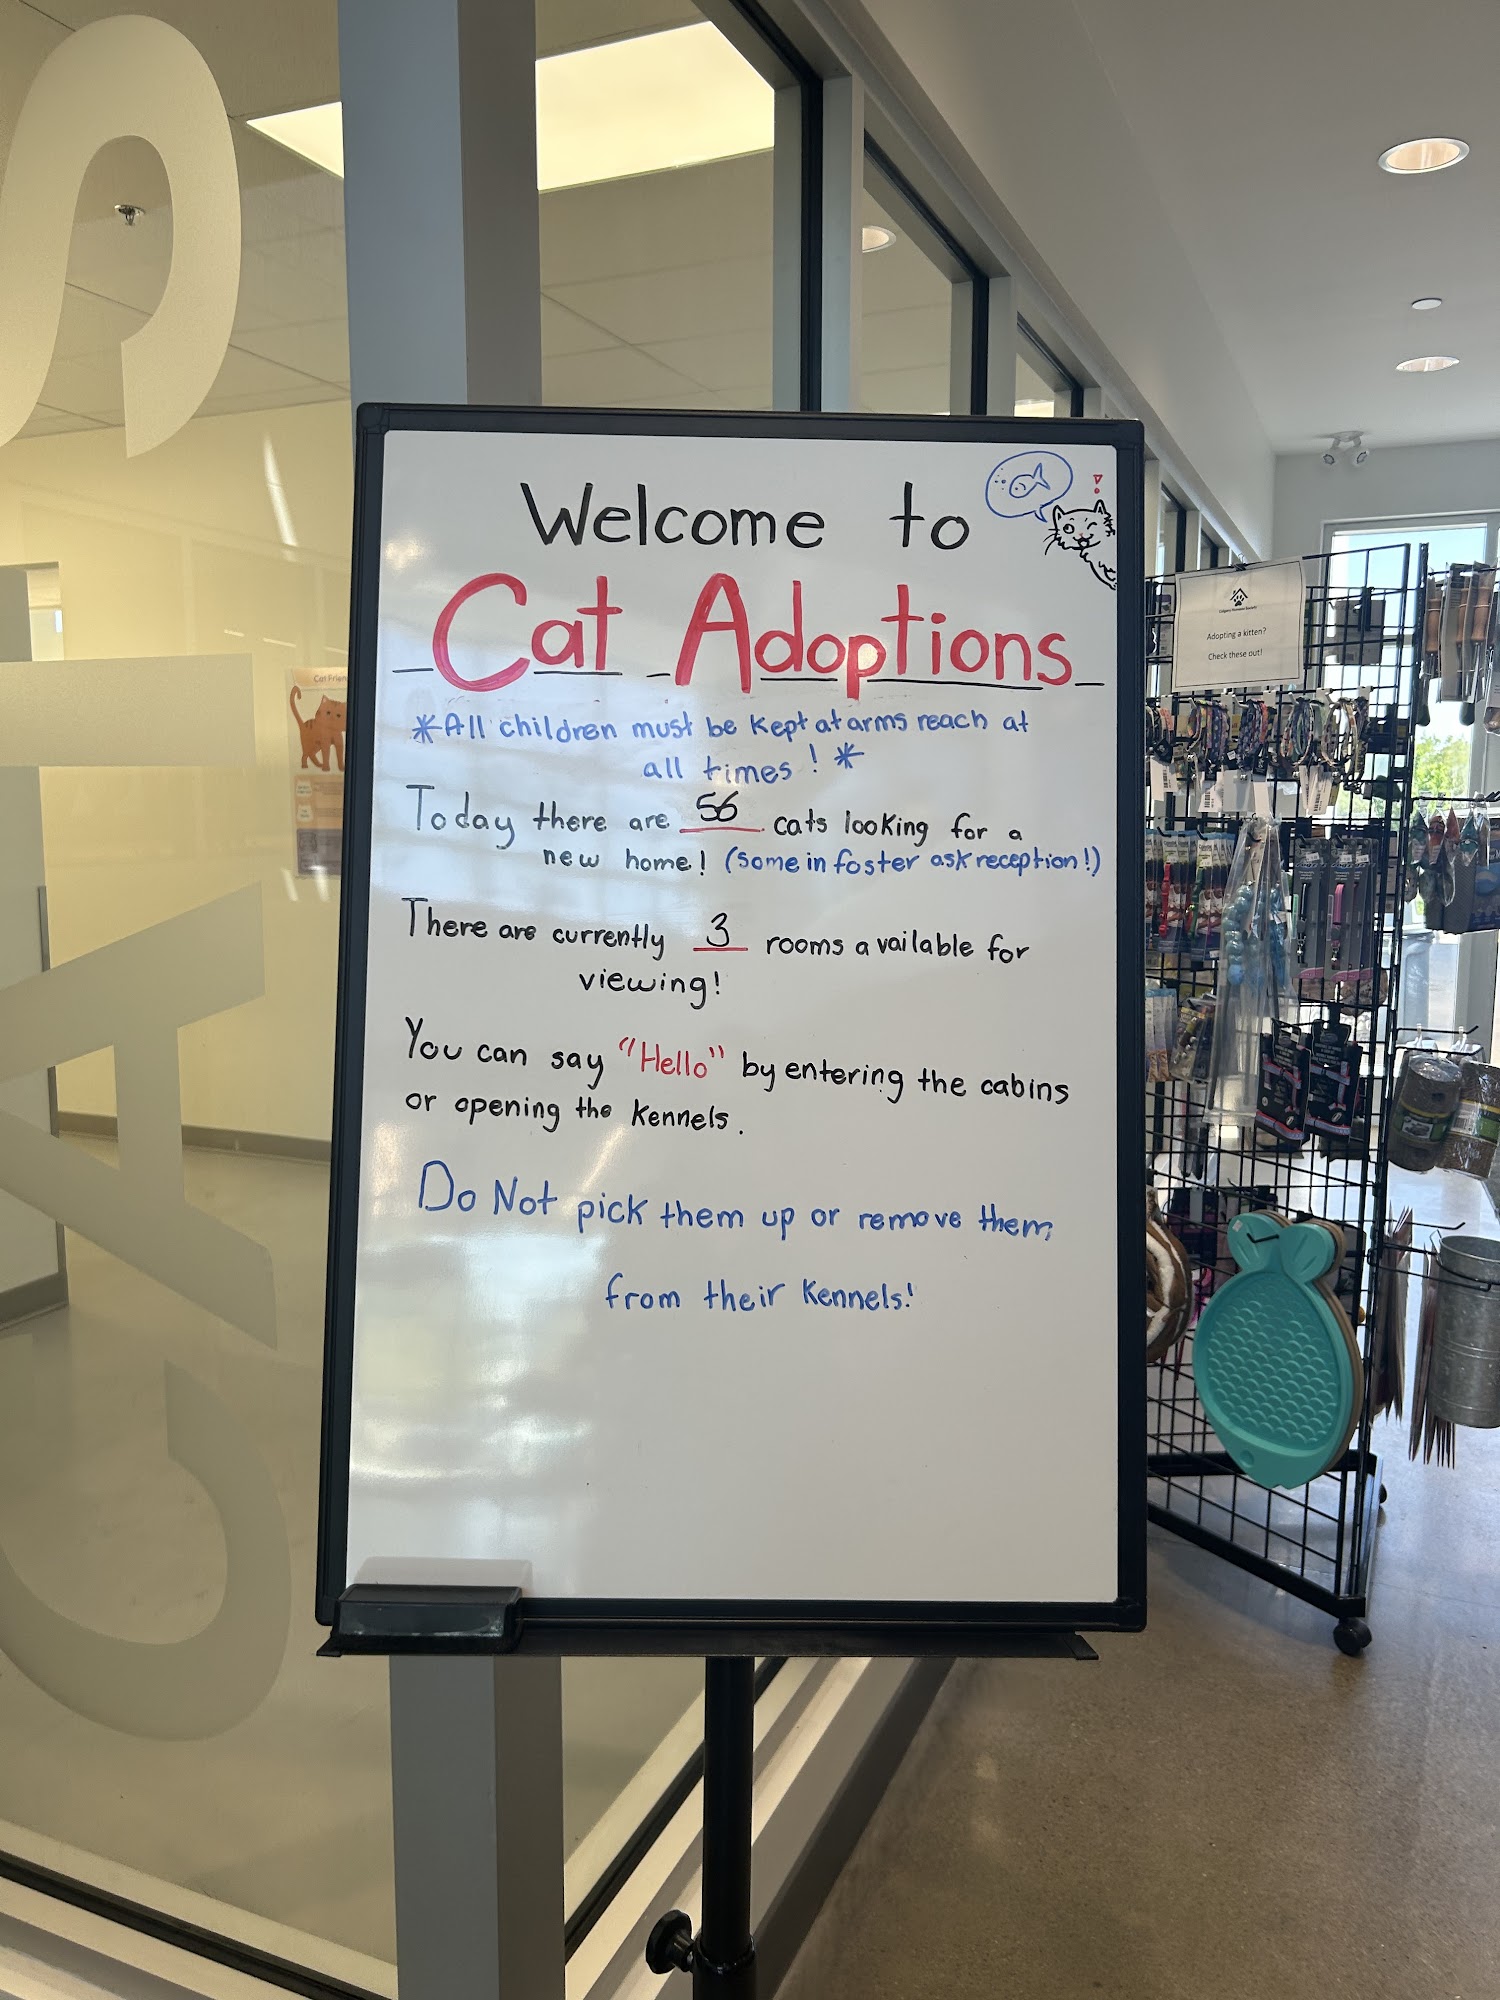 Welcome to
Cat Adoptions
*All children must be kept at arms reach at
all times! *
Today there are 56 cats looking for a
new home! (some in foster ask reception!)
There are currently 3 rooms available for
viewing!
You can say "Hello" by entering the cabins
or opening the kennels.
Do Not pick them up or remove them
from their kennels!
Calgary Humane Society
Adopting a kitten?
Check these out!
Cat Frien
CATS